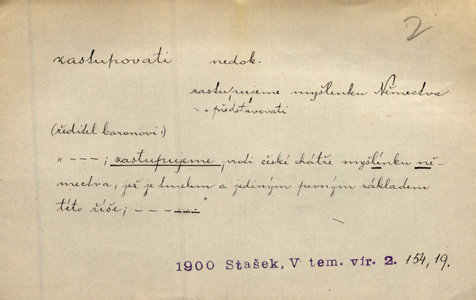 2
zastupovati nedok.
zastupujeme myšlenku Němectva
představovati
(ředitel baronovi:)
„ – – – ; zastupujeme, proti české chátře myšlínku ně-
mectva, jež je tmelem a jediným pevným základem
této říše; – – – ...“
1900 Stašek, V tem. vír. 2. 154, 19.